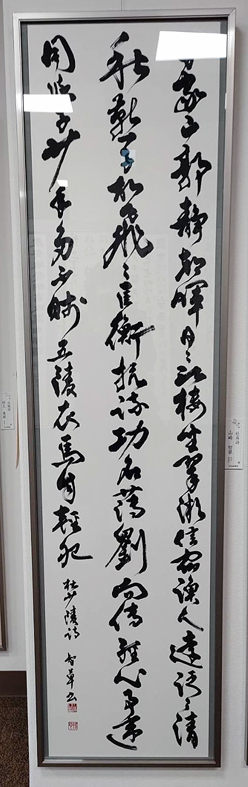 千家山郭静朝暉日々江楼坐翠微信宿漁人還泛々清
秋燕子故飛々匡衡抗疏功名薄劉向傳經心事違
同學少年多不賤五陵衣馬自輕肥 杜少陵詩